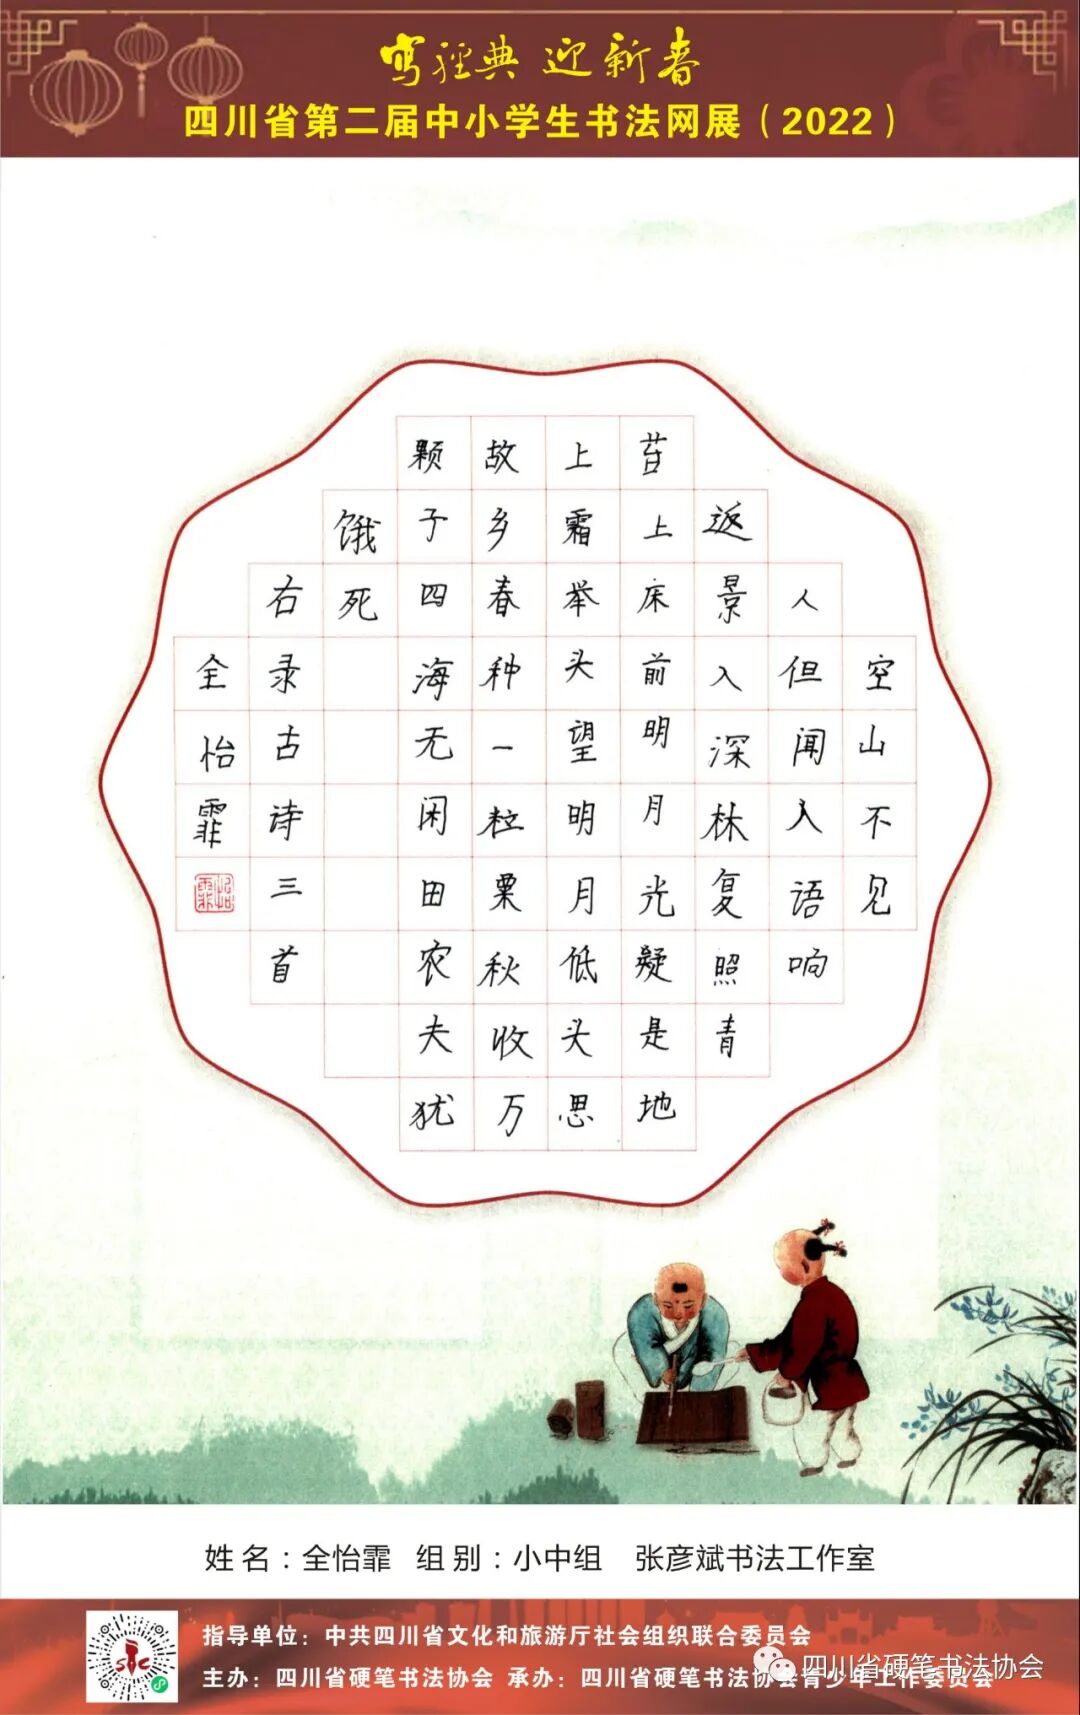 写经典 迎新春
四川省第二届中小学生书法网展（2022）
空山不见
人但闻人语响
返景入深林复照青
苔上床前明月光疑是地
上霜举头望明月低头思
故乡春种一粒粟秋收万
颗子四海无闲田农夫犹
饿死
右录古诗三首
全怡霏
怡霏
姓名：全怡霏 组别：小中组 张彦斌书法工作室
指导单位：中共四川省文化和旅游厅社会组织联合委员会
主办：四川省硬笔书法协会 承办：四川省硬笔书法协会青少年工作委员会
四川省硬笔书法协会